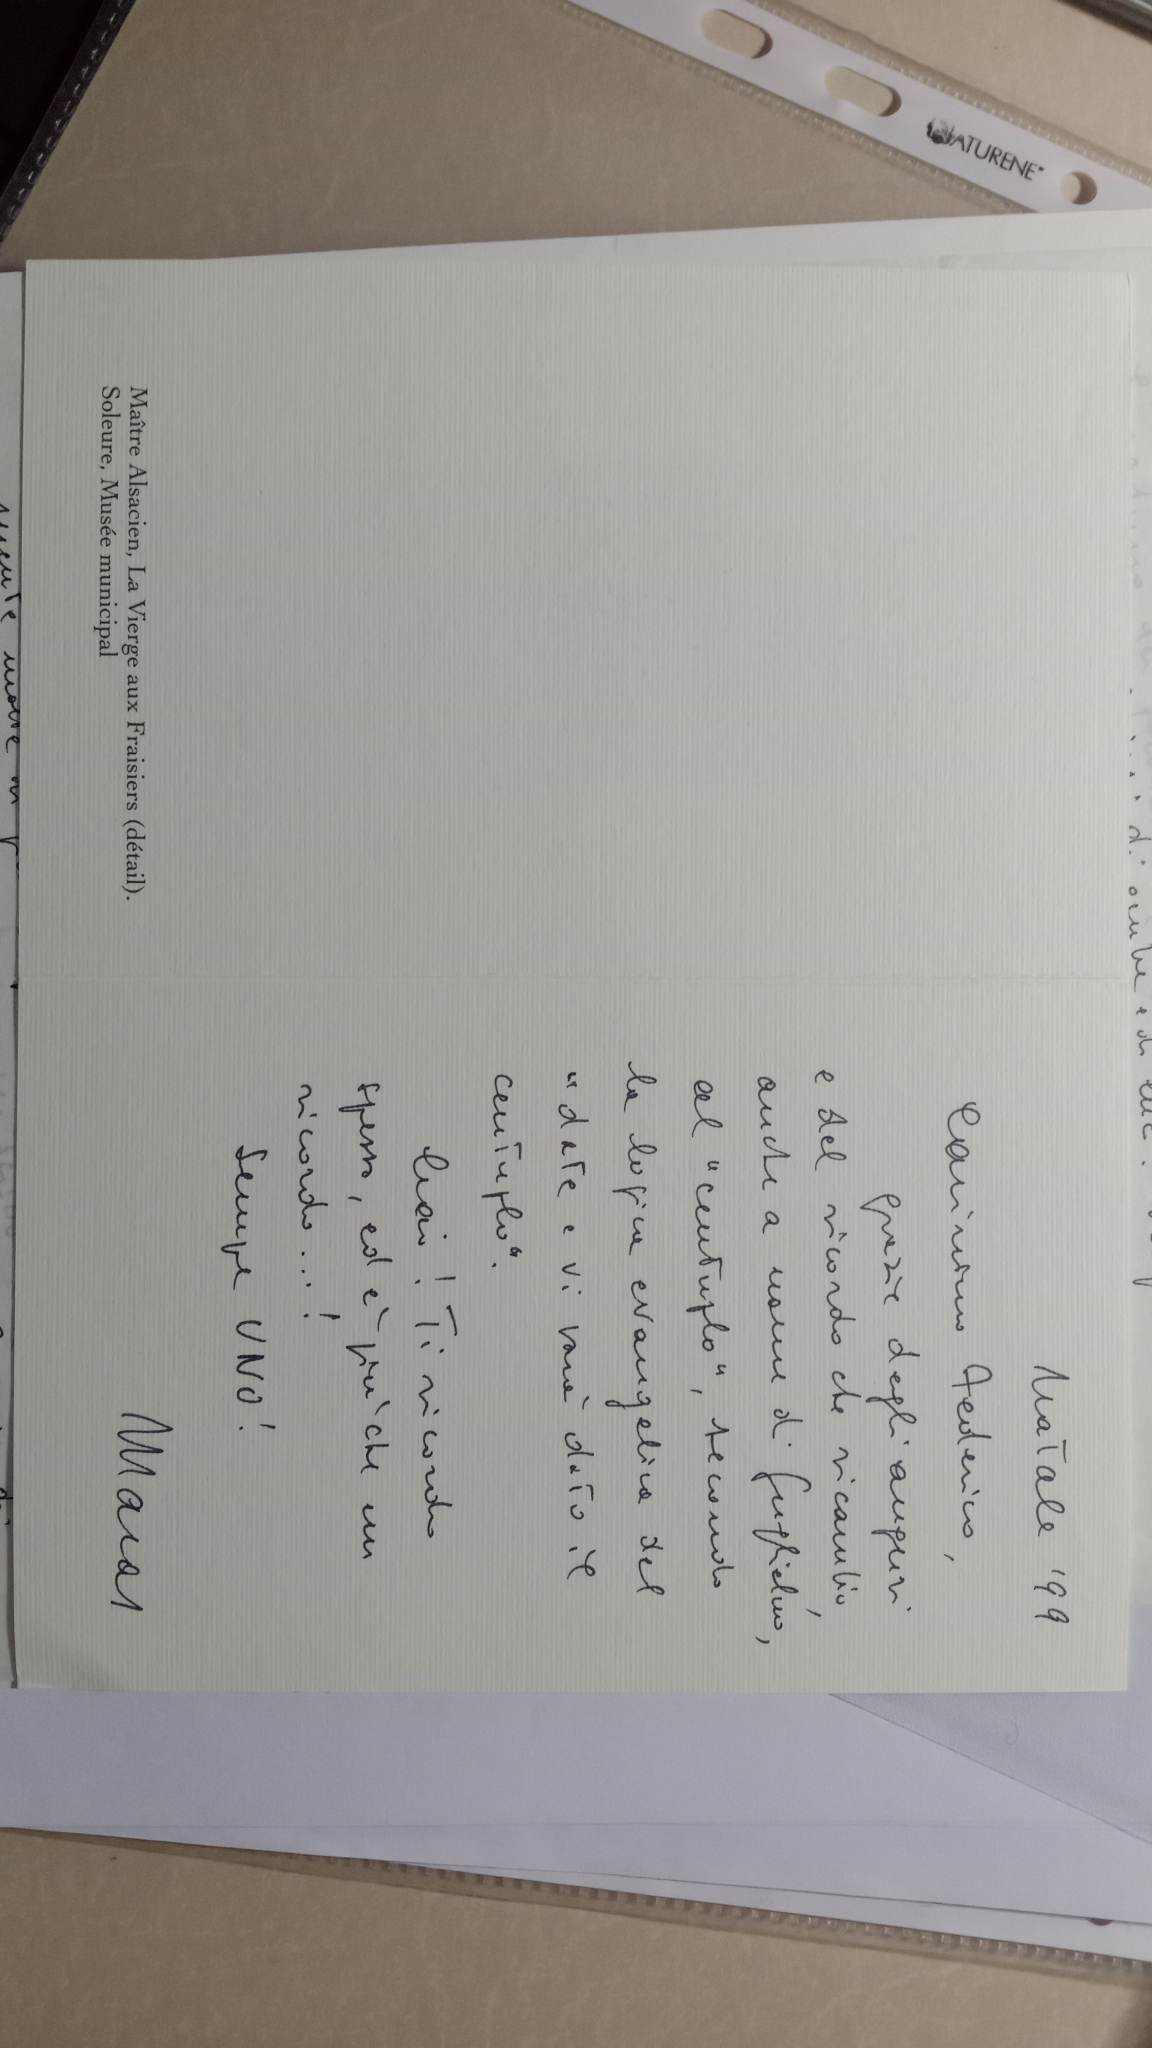 NATURENE
Maître Alsacien, La Vierge aux Fraisiers (détail).
Soleure, Musée municipal
Natale '99
Carissimo Federico,
grazie degli auguri
e del ricordo che ricambio,
anche a nome di Guglielmo,
al "centuplo", secondo
la logica evangelica del
"date e vi sarà dato il
centuplo".
Ciao! Ti ricordo
spesso, ed e' piu' che un
ricordo...!
Sempre UNO!